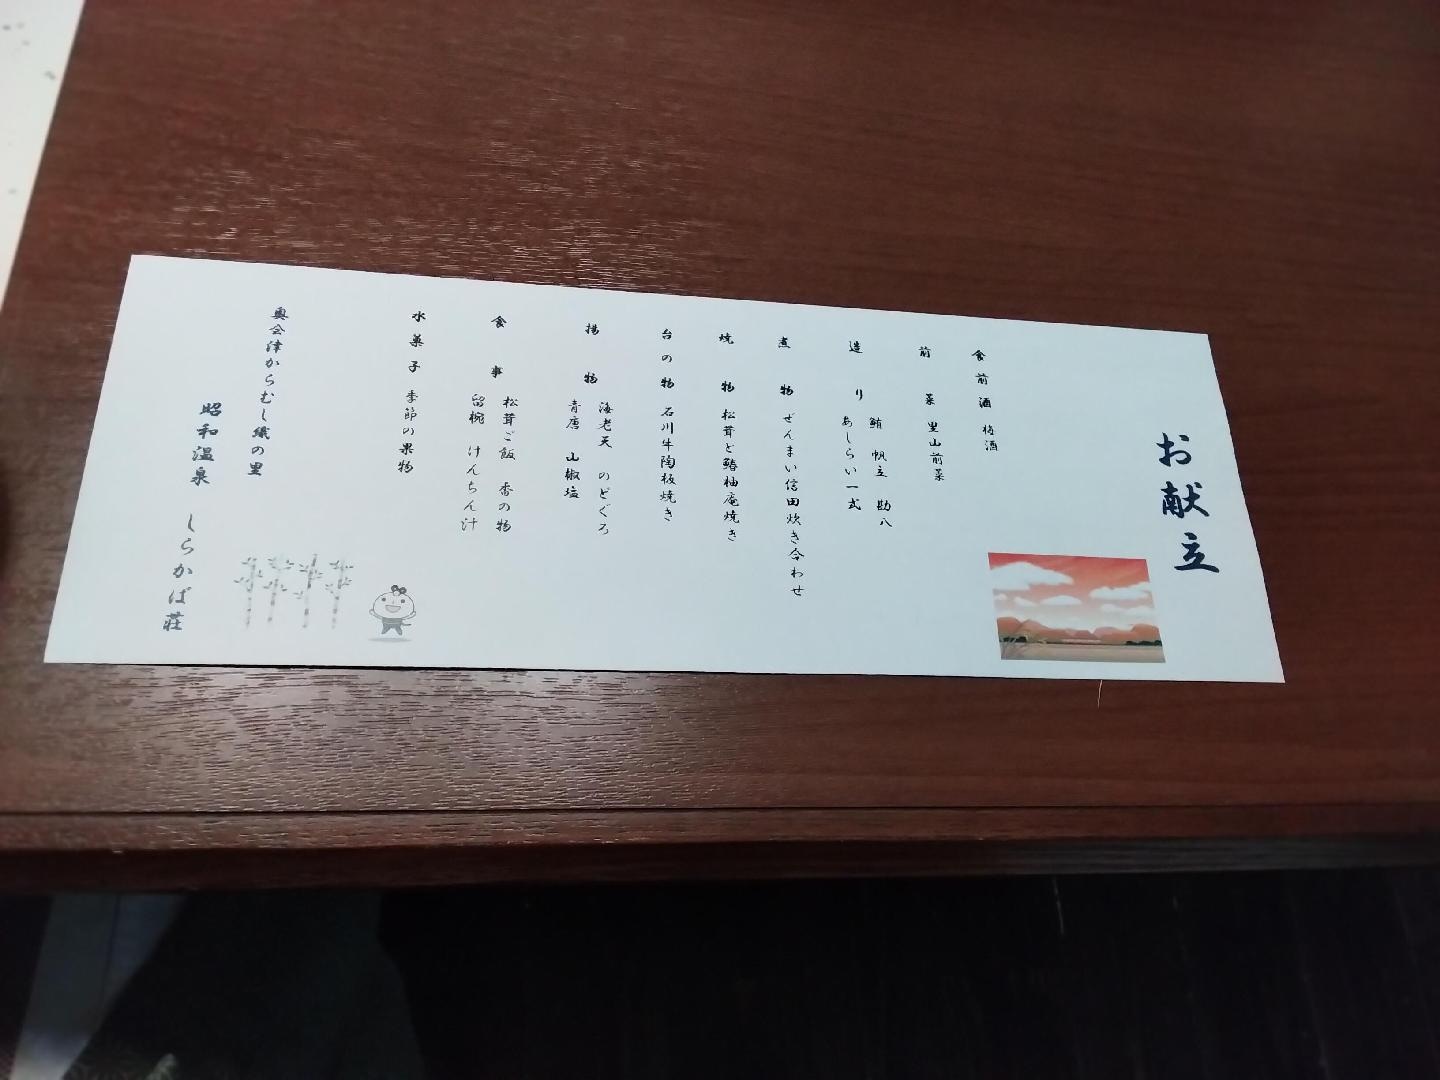 お献立
食前酒 梅酒
前菜 里山前菜
造り 鮪 帆立 勘八
あしらい一式
煮物 ぜんまい信田炊き合わせ
焼物 松茸と鰆柚庵焼き
台の物 石川牛陶板焼き
揚物 海老天 のどぐろ
青唐 山椒塩
食事 松茸ご飯 香の物
留椀 けんちん汁
水菓子 季節の果物
奥会津からむし織の里
昭和温泉 しらかば荘